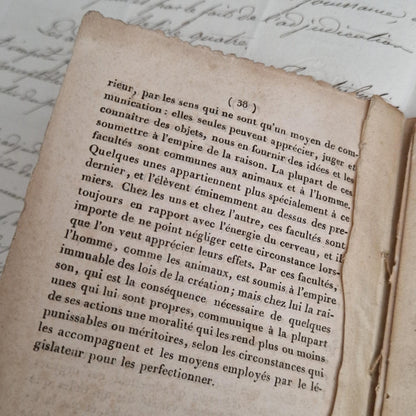 poursuivre,
par le fait de l'adjudication
quatre
( 38 )
rieur, par les sens qui ne sont qu'un moyen de com-
munication : elles seules peuvent apprécier, juger et
connaître des objets, nous en fournir des idées et les
soumettre à l'empire de la raison. La plupart de ces
facultés sont communes aux animaux et à l'homme.
Quelques unes appartiennent plus spécialement à ce
dernier, et l'élèvent éminemment au dessus des pre-
miers. Chez les uns et chez l'autre, ces facultés sont
toujours en rapport avec l'énergie du cerveau, et il
importe de ne point négliger cette circonstance lors-
que l'on veut apprécier leurs effets. Par ces facultés,
l'homme, comme les animaux, est soumis à l'empire
immuable des lois de la création ; mais chez lui la rai-
son, qui est la conséquence nécessaire de quelques
unes qui lui sont propres, communique à la plupart
de ses actions une moralité qui les rend plus ou moins
punissables ou méritoires, selon les circonstances qui
les accompagnent et les moyens employés par le lé-
gislateur pour les perfectionner.